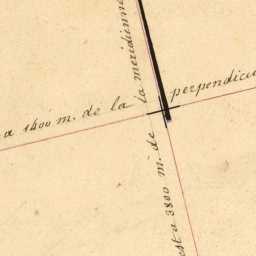 a 1400 m. de la
la meridienne
perpendicu
est a 3800 m. de